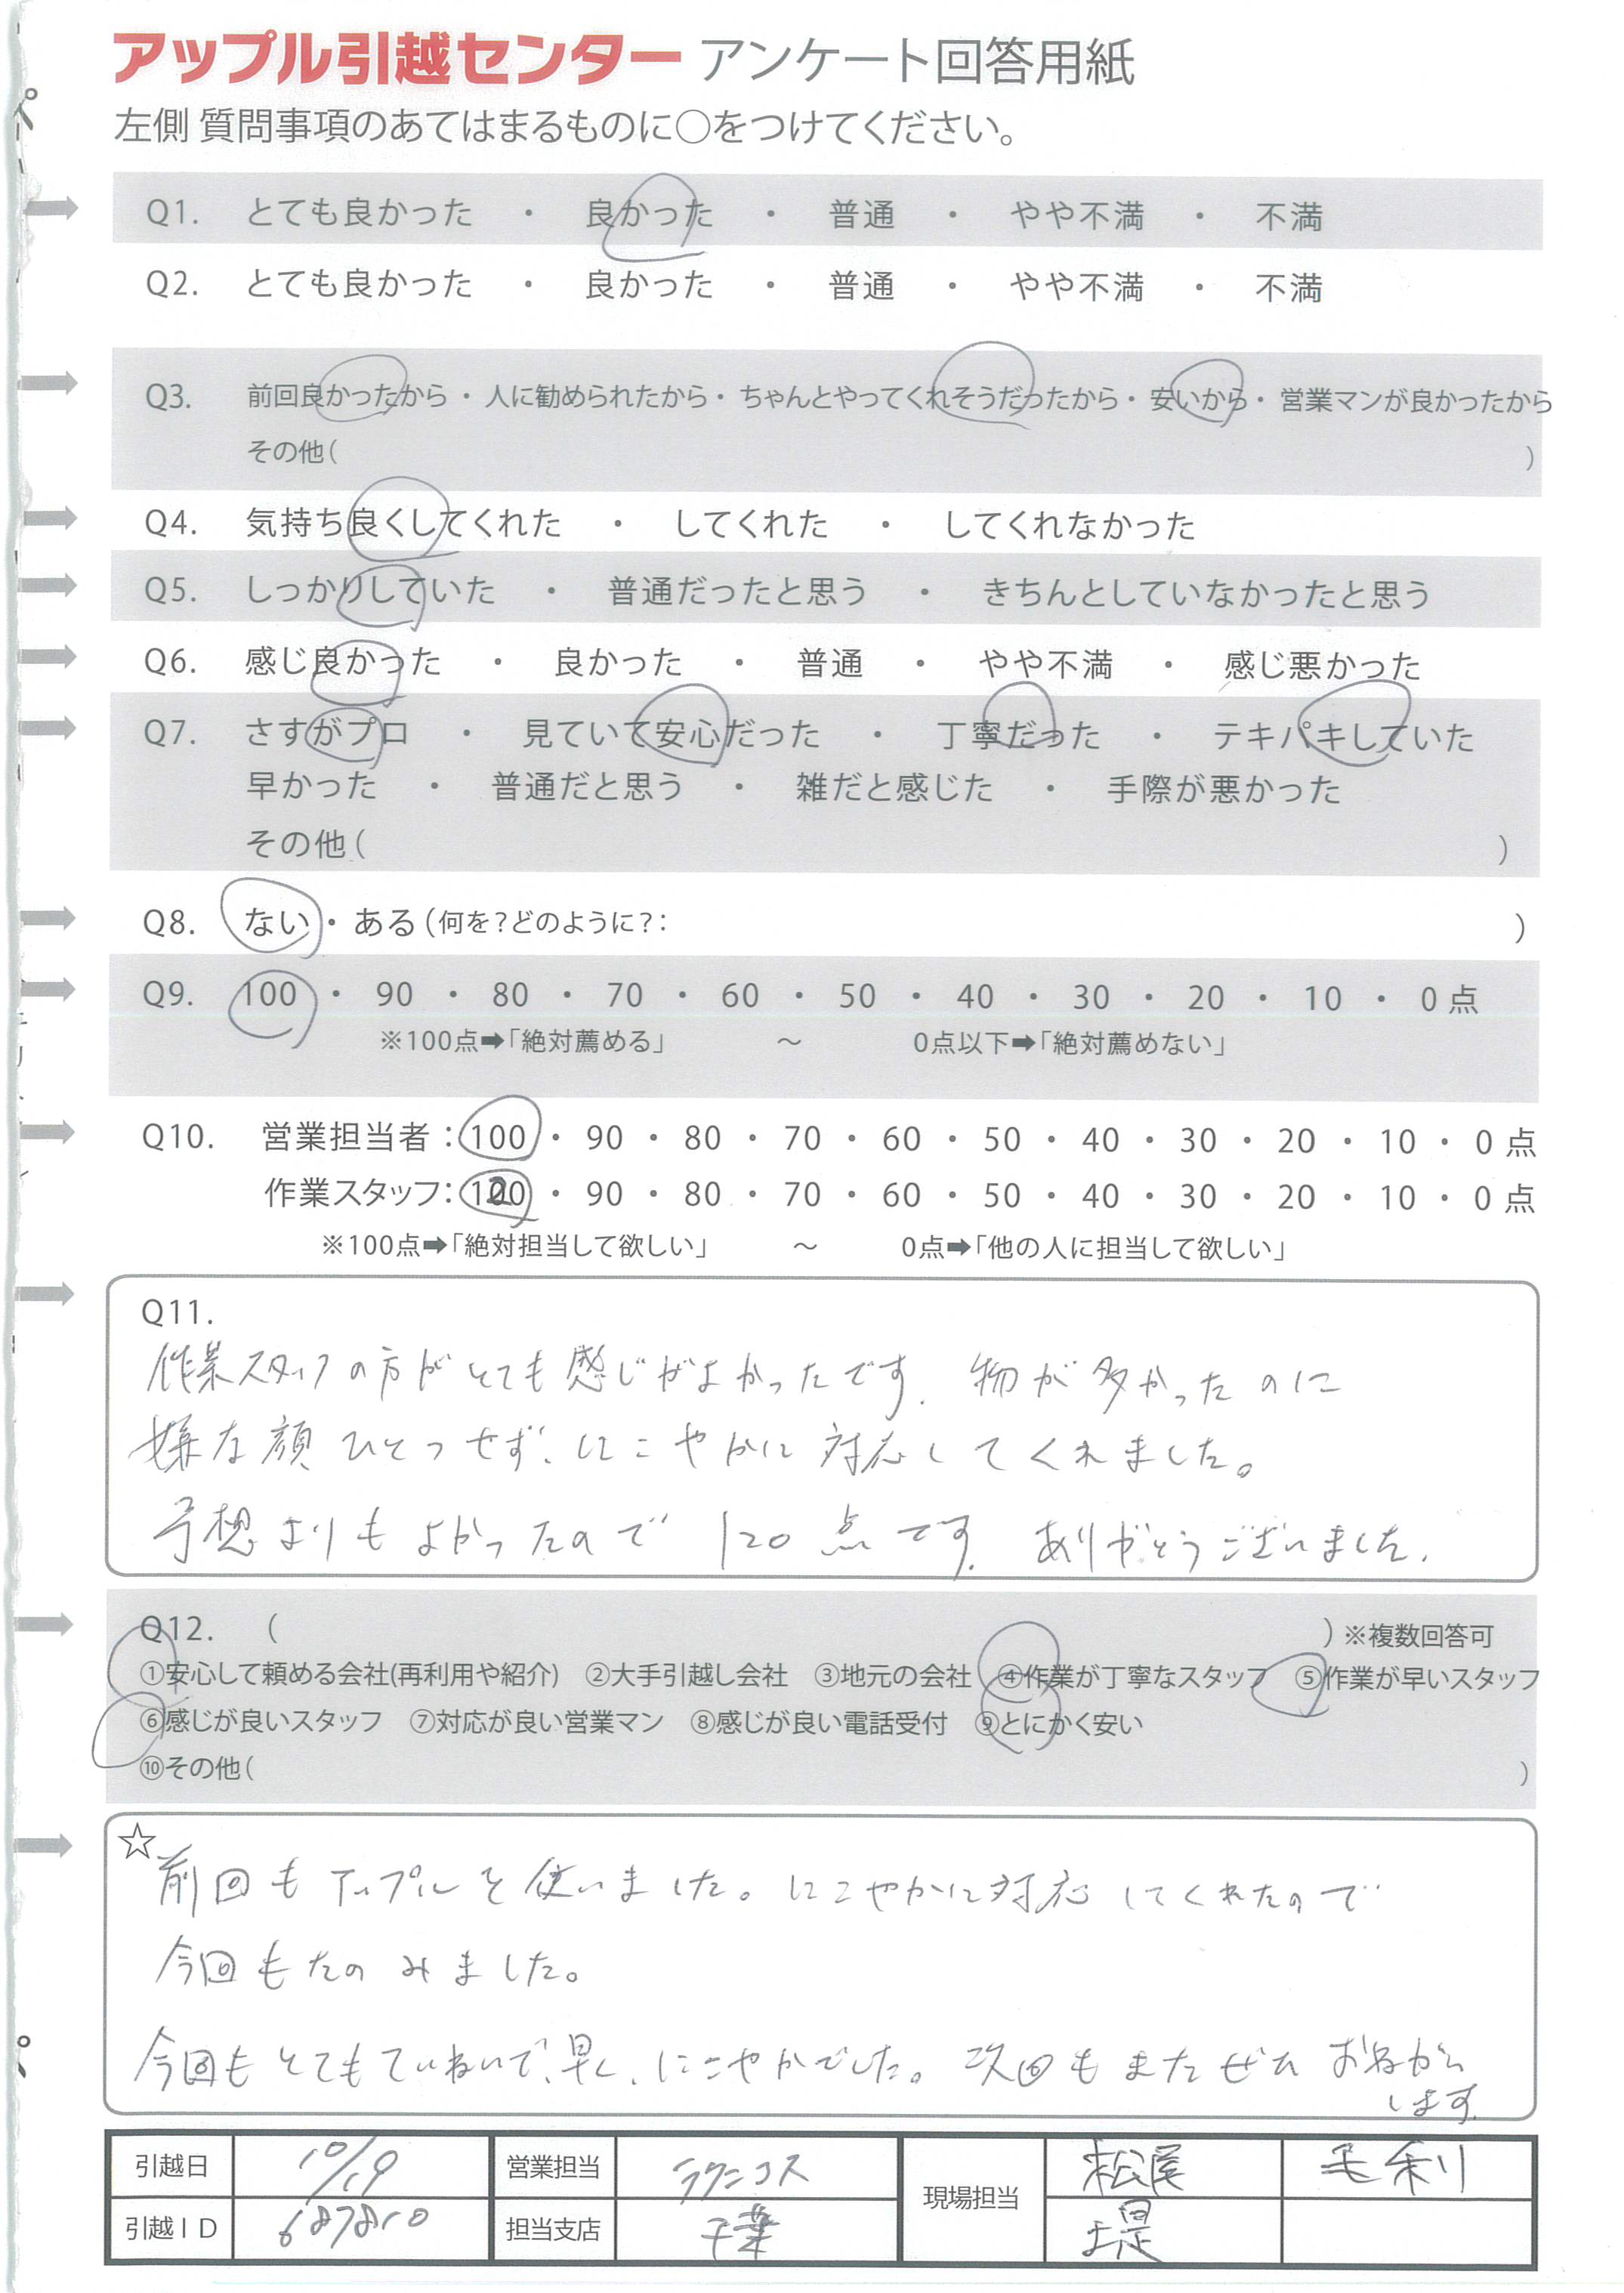 アップル引越センター アンケート回答用紙
左側 質問事項のあてはまるものに○をつけてください。
Q1. とても良かった ・ 良かった ・ 普通 ・ やや不満 ・ 不満
Q2. とても良かった ・ 良かった ・ 普通 ・ やや不満 ・ 不満
Q3. 前回良かったから ・ 人に勧められたから ・ ちゃんとやってくれそうだったから ・ 安いから ・ 営業マンが良かったから
その他( )
Q4. 気持ち良くしてくれた ・ してくれた ・ してくれなかった
Q5. しっかりしていた ・ 普通だったと思う ・ きちんとしていなかったと思う
Q6. 感じ良かった ・ 良かった ・ 普通 ・ やや不満 ・ 感じ悪かった
Q7. さすがプロ ・ 見ていて安心だった ・ 丁寧だった ・ テキパキしていた
早かった ・ 普通だと思う ・ 雑だと感じた ・ 手際が悪かった
その他( )
Q8. ない ・ ある (何を?どのように?: )
Q9. 100 ・ 90 ・ 80 ・ 70 ・ 60 ・ 50 ・ 40 ・ 30 ・ 20 ・ 10 ・ 0点
※100点➡「絶対薦める」 ～ 0点以下➡「絶対薦めない」
Q10. 営業担当者:100 ・ 90 ・ 80 ・ 70 ・ 60 ・ 50 ・ 40 ・ 30 ・ 20 ・ 10 ・ 0 点
作業スタッフ:120 ・ 90 ・ 80 ・ 70 ・ 60 ・ 50 ・ 40 ・ 30 ・ 20 ・ 10 ・ 0 点
※100点➡「絶対担当して欲しい」 ～ 0点➡「他の人に担当して欲しい」
Q11.
作業スタッフの方がとても感じがよかったです。物が多かったのに
嫌な顔ひとつせず、にこやかに対応してくれました。
予想よりもよかったので 120点です。ありがとうございました。
Q12. ( ) ※複数回答可
①安心して頼める会社(再利用や紹介) ②大手引越し会社 ③地元の会社 ④作業が丁寧なスタッフ ⑤作業が早いスタッフ
⑥感じが良いスタッフ ⑦対応が良い営業マン ⑧感じが良い電話受付 ⑨とにかく安い
⑩その他( )
☆
前回もアップルを使いました。にこやかに対応してくれたので
今回もたのみました。
今回もとてもていねいで、早く、にこやかでした。次回もまたぜひ おねがい
します。
引越日 10/19 営業担当 ラクニコス 現場担当 松尾 毛利
引越ID 687810 担当支店 千葉 堤